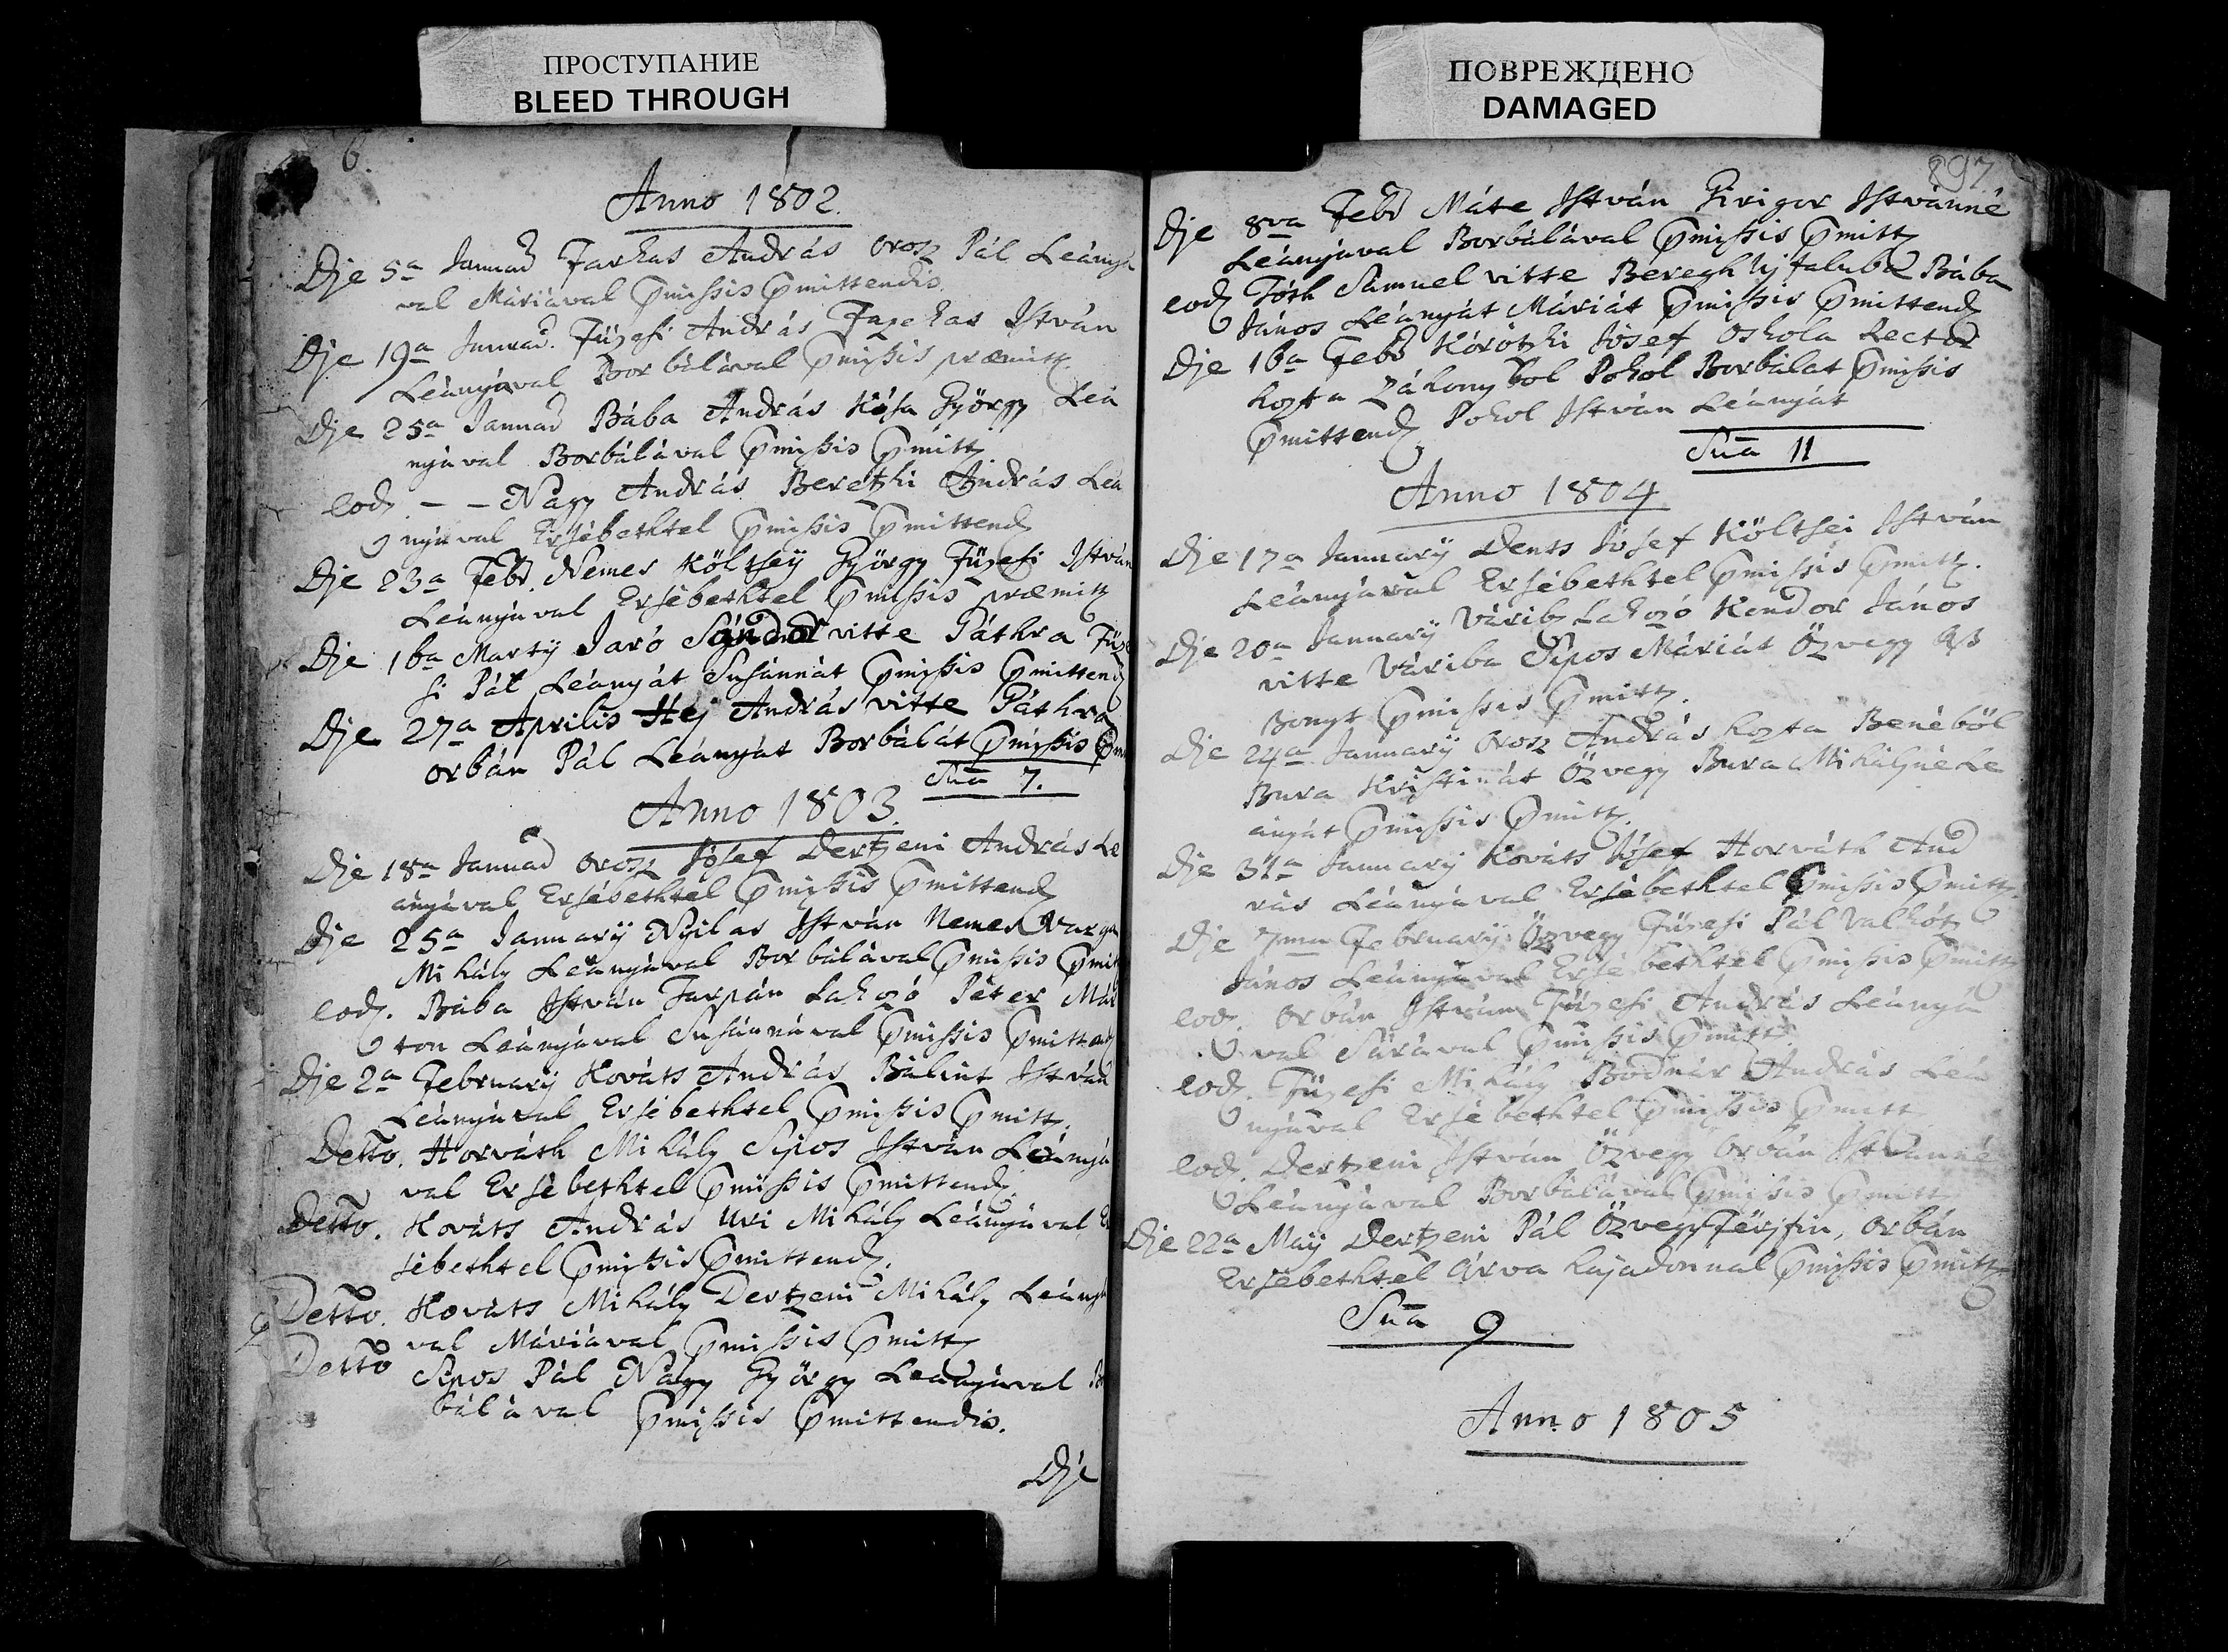 ПРОСТУПАНИЕ
BLEED THROUGH
ПОВРЕЖДЕНО
DAMAGED
6.
Anno 1802.
Die 5a Januar Farkas András Orosz Pál Leányá
val Máriával pmissis pmittendis.
Die 19a Januar. Füzesi András Fazekas István
Leányával Borbálával pmissis præmitt
Die 25a Januar Bába András Kósa György Leá
nyával Borbálával pmissis pmitt
eod. - - Nagy András Beretzki András Leá
nyával Ersébethtel pmissis pmittend
Die 23a Febr. Nemes Költsey György Füzesi István
Leányával Ersébethtel pmissis præmitt
Die 16a Martÿ Jaró Sándor vitte Páthra Füze
si Pál Leányát Susánnát pmissis pmittend
Die 27a Aprilis Héj András vitte Páthra
Orbán Pál Leányát Borbálát pmissis pm
Sūa 7.
Anno 1803.
Die 18a Januar Orosz Jósef Dertzeni András Le
ányával Ersébethtel pmissis pmittend
Die 25a Januarÿ Nyilas István Nemes Varga
Mihály Leányával Borbálával pmissis pmitt
eod. Bába István Tarpán Lakozó Péter Már
ton Leányával Susánnával pmissis pmittend
Die 2a Februarÿ Kováts András Bálint István
Leányával Ersébethtel pmissis pmitt.
Detto. Horváth Mihály Sipos István Leányá
val Ersébethtel pmissis pmittend
Detto. Kováts András Uri Mihály Leányával Er
sébethtel pmissis pmittend.
Detto. Kováts Mihály Dertzeni Mihály Leányá
val Máriával pmissis pmitt
Detto Sipos Pál Nagy György Leányával Bor
bálával pmissis pmittendis.
Die
297
Die 8va Febr Máte István Girigor Istvánné
Leányával Borbálával pmissis pmitt
eod Tóth Sámuel vitte Beregh Ujfaluba Bába
János Leányát Máriát pmissis pmittend
Die 16a Febr Körötzki Jósef Oskola Rector
hozta Záhonyból Pokol Borbálat pmissis
pmittend Pokol István Leányát
Sūa 11
Anno 1804
Die 17a Januarÿ Dents Jósef Költsei István
Leányával Ersébethtel pmissis pmitt.
Die 20a Januarÿ Várib Lakozó Kendor János
vitte Váriba Sipos Máriát Özvegy
pmissis pmitt.
Die 24a Januarÿ Orosz András hozta Benéböl
Bura Kristinát Özvegy Bura Mihályné Le
ányát pmissis pmitt.
Die 31a Januarÿ Kováts Jósef Horváth And
rás Leányával Ersébethtel pmissis pmitt.
Die 7ma Februarÿ Özvegy Füzesi Pál Valkótz
János Leányával Ersébethtel pmissis pmitt
eod. Orbán István Füzesi András Leányá
val Sárával pmissis pmitt.
eod. Füzesi Mihály Bodnár András Leá
nyával Ersébethtel pmissis pmitt
eod. Dertzeni István Özvegy Orbán Istvánné
Leányával Borbálával pmissis pmitt
Die 22a Maÿ Dertzeni Pál Özvegy Férjfiu, Orbán
Ersébethtel Árva hajadonnal pmissis pmitt
Sūa 9
Anno 1805